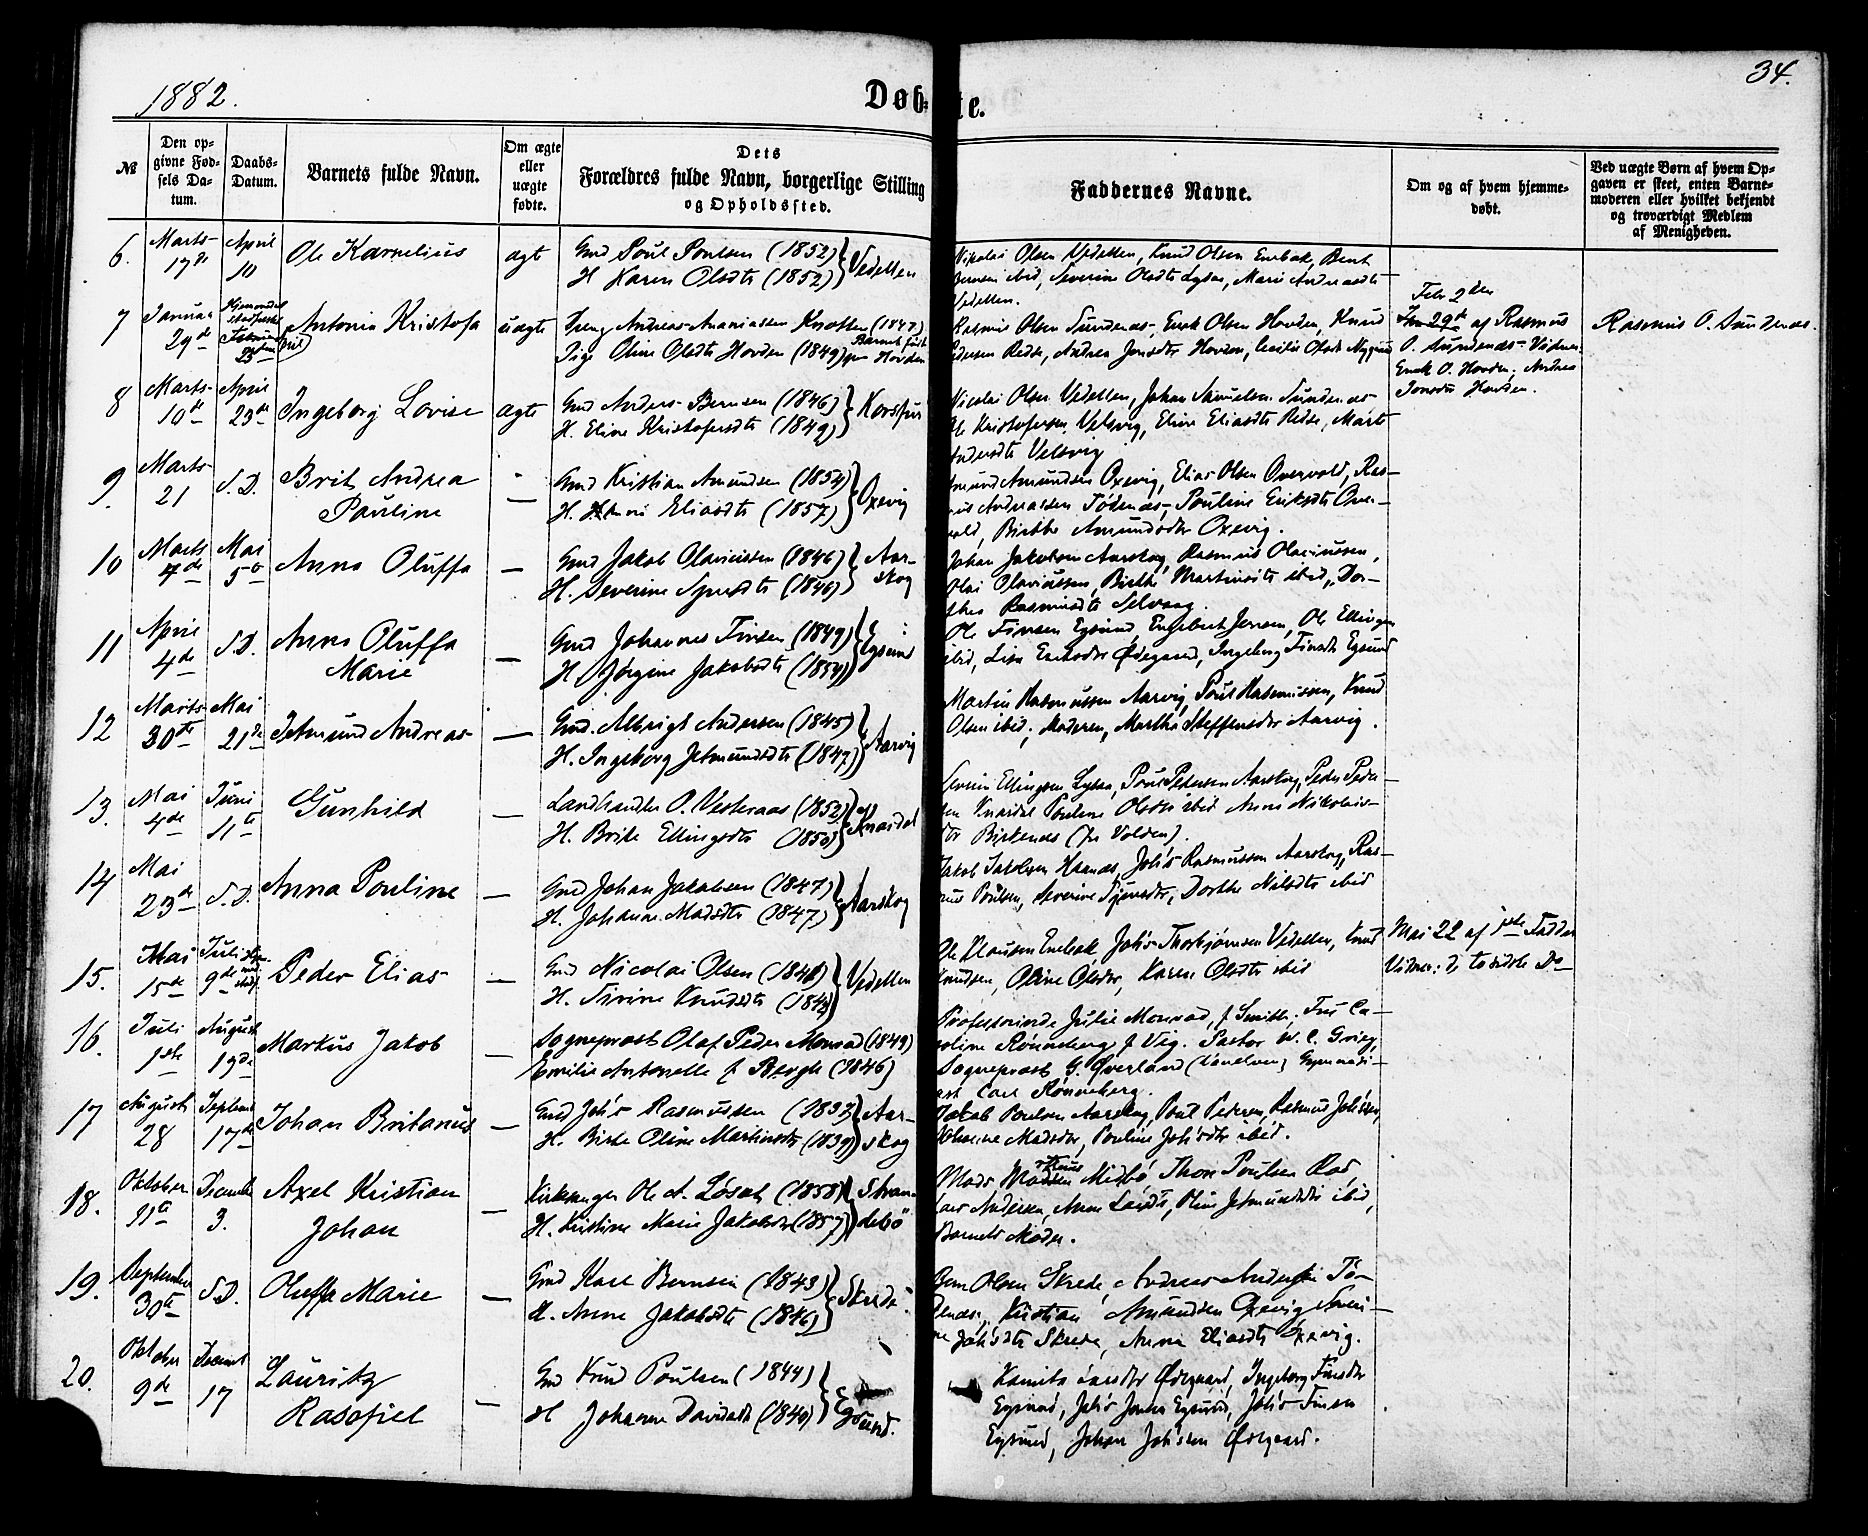 1882.
Døb-
te.
34.
№
Den op-
givne Fød-
sels Da-
tum.
Daabs-
Datum.
Barnets fulde Navn.
Om ægte
eller
uægte
fødte.
Dets
Forældres fulde Navn, borgerlige Stilling
og Opholdssted.
Faddernes Navne.
Om og af hvem hjemme-
døbt.
Ved uægte Børn af hvem Op-
gaven er skeet, enten Barne-
moderen eller hvilket bekjendt
og troværdigt Medlem
af Menigheden.
6. Marts 17de April 10 Ole Kornelius ægt
Gmd Poul Poulsen (1852)
H Karen Olsdt (1852) Vedelden
Nikolai Olsen Vedelden, Knud Olsen Enebak, Bernt
Bernsen ibid, Severine Olsdt Lysaa, Marie Andreasdt
Vedelden.
7 Januar 29de Antonia Kristofa uægte
Ung. Andreas Ananiassen Knotten (1847)
Pige Oline Olsdt Hovden (1849) Hovden
Rasmus Olsen Sundenæs, Enok Olsen Hovden, Knud
Pedersen Redse, Andrea Jonsdtr Hovden, Cecilie Olsdt
Febr 2den
29de af Rasmus
O. Sundenæs- Vidner
Enok O. Hovden. Andrea
Jonsdtr Hovden.
Rasmus O. Sundenæs.
8 Marts 10de April 23de Ingeborg Lovise ægte
Gmd Anders Bernsen (1846)
H. Eline Kristofersdt (1849) Korsfur
Nicolai Olsen Vedelden, Johan Samuelsen Sundenæs
Ole Kristofersen Velsvig, Eline Eliasdt Redse, Marte
Andersdt Velsvig
9. Marts 21 S.D. Brit Andrea
Pauline
Gmd Kristian Amundsen (1854)
H. Anne Eliasdt (1857) Oxevig
Amund Amundsen Oxevig, Elias Olsen Overvold, Ras-
mus Andreassen Tødenæs, Pouline Eriksdt Over-
vold, Birthe Amundsdtr Oxevig.
10 Marts 4de Mai 5te Anna Oluffa —
Gmd Jakob Olaviussen (1846)
H. Severine Syversdt (1846) Aar-
skog
Johan Jakobsen Aarskog, Rasmus Olaviussen,
Olai Olaviussen, Birthe Martinsdt ibid, Dor-
thea Rasmusdt Selvaag.
11 April 4de S.D. Anna Oluffa
Marie —
Gmd Johannes Finsen (1849)
H Jørgine Jakobsdt (1854) Egsund
Ole Finsen Egsund, Engebert Jensen, Ole Ellingsen
ibid, Lisa Eriksdtr Ødegaard, Ingeborg Finsdt Egsund
12 Marts 30te Mai 21de Jetmund Andreas —
Gmd. Albrigt Andersen (1845)
H. Ingeborg Jetmundsdt (1847) Aarvig
Martin Rasmussen Aarvig, Poul Rasmussen, Knud
Olsen ibid, Moderen, Martha Steffensdtr Aarvig.
13. Mai 4de Juni 11te Gunhild —
Landhandler O. Vesteraas (1852)
H. Brite Ellingsdt (1850) Knardal
Severin Ellingsen Lysaa, Poul Pedersen Aarskog, Peder Peder-
sen Knardal Pouline Olsdt ibid Anne Nikolais-
dtr Birkenæs (fra Volden).
14 Mai 23de S.D. Anna Pouline —
Gmd Johan Jakobsen (1847)
H. Johanne Madsdt (1847) Aarskog
Jakob Jakobsen Haanæs, Johs Rasmussen Aarskog, Ras-
mus Poulsen, Severine Syversdtr, Dorthe Nilsdt ibid
15. Mai 15de Juli 9de Peder Elias —
Gmd Nicolai Olsen (1848)
H. Sirine Knudsdt (1842) Vedelden
Ole Klausen Enebak, Johs Thorbjørnsen Vedelden, Knud
Knudsen, Oline Olsdtr, Karen Olsdt ibid
Mai 22 af 1ste Fadder
Vidner: de to sidste Do
16. Juli 1ste August 19de Markus Jakob —
Sogneprest Olaf Peder Monrad (1849)
Emilie Antonette f. Bergh (1846)
Professorinde Julie Monrad, f Smith. Fru Ca-
roline Rønneberg f Vig. Pastor W. C. Grieg,
Sogneprest G. Øverland (Vanelven) Gymnasi-
ast Carl Rønneberg.
17 August 28 Septemb 17de Johan Britanus —
Gmd Johs Rasmussen (1832)
H. Birte Oline Martinsdt (1839) Aar-
skog
Jakob Poulsen Aarskog, Poul Pedersen, Rasmus Johssen,
Johanne Madsdtr, Pouline Johsdtr ibid.
18. Oktober 11te Decemb 3. Axel Kristian
Johan —
Kirkesanger Ole A. Løset (1858)
H. Kristine Marie Jakobsdt (1857) Stran-
debø
Mads Madsen Midbø Thore Poulsen Rød,
Lars Andersen, Anne Larsdt, Oline Jetmundsdt ibid,
Barnets Moder.
19. September 30te S.D. Oluffa Marie —
Gmd Karl Bernsen (1843)
H. Anne Jakobsdt (1846) Skrede
Bern Olsen Skrede, Andreas Andersen Tø-
denæs, Kristian Amundsen Oxevig Severi-
ne Johsdt Skrede, Anne Eliasdt Oxevig.
20. Oktober 9de Decemb 17 Lauritz
Rasofiel —
Gmd Knud Poulsen (1844)
H Johanne Davidsdt (1840) Egsund.
Kanita Larsdtr Ødegaard, Ingeborg Finsdtr
Egsund, Johs Jonsen Egsund, Johs Finsen
Egsund, Johan Johssen Ødegaard.